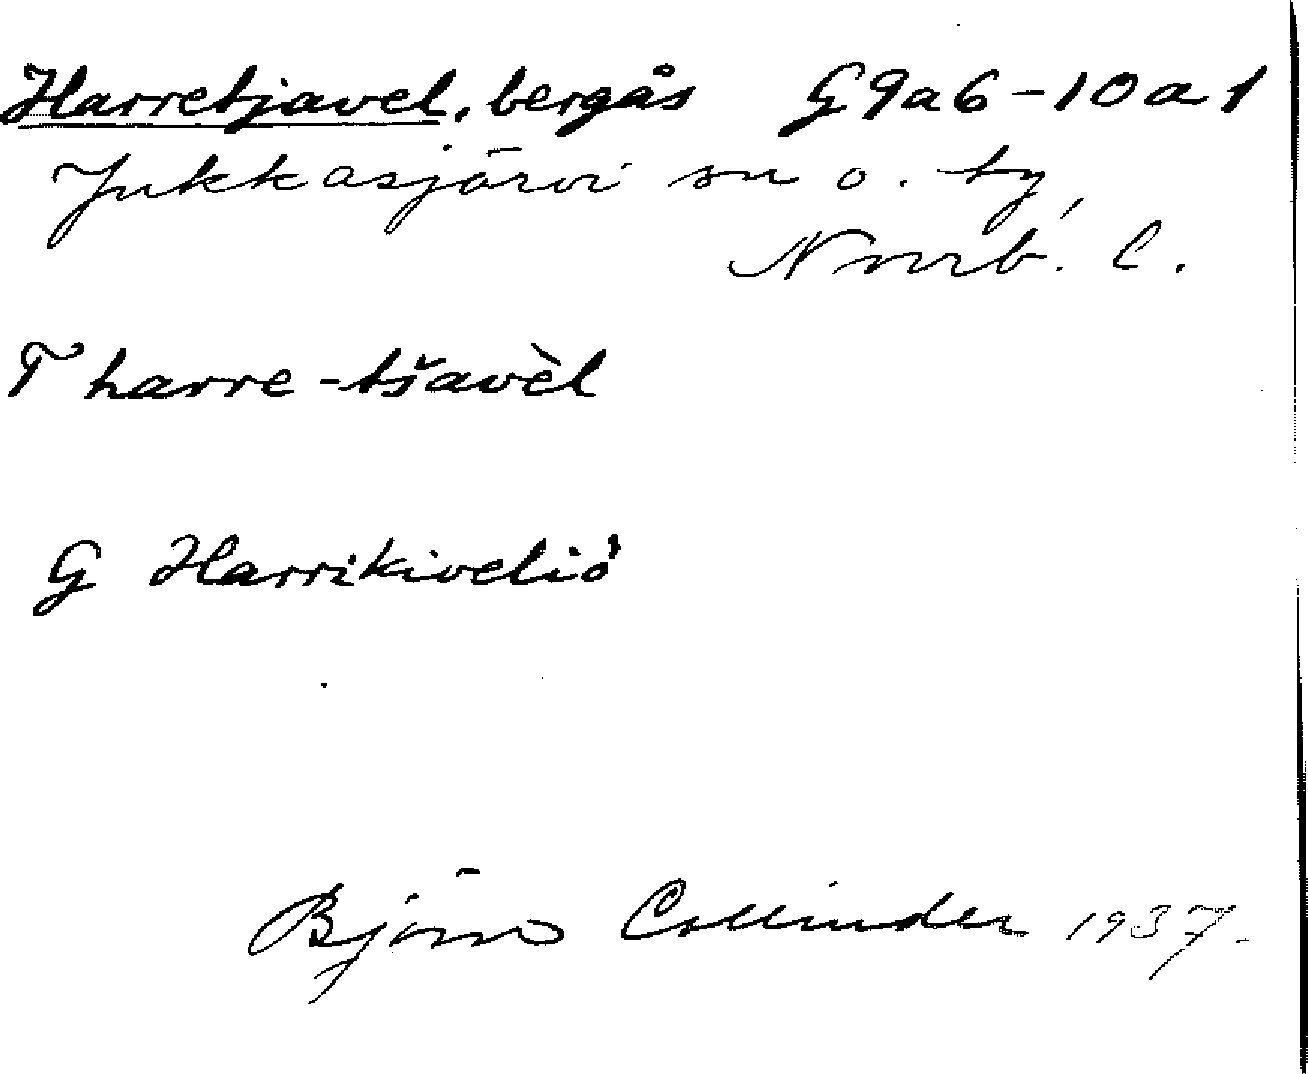 Harretjavel, bergås G9a6-10a1
Jukkasjärvi sn o. tg,
Norrb. l.
T harre-tšavèl
G Harrikiveliö
Björn Collinder 1937.